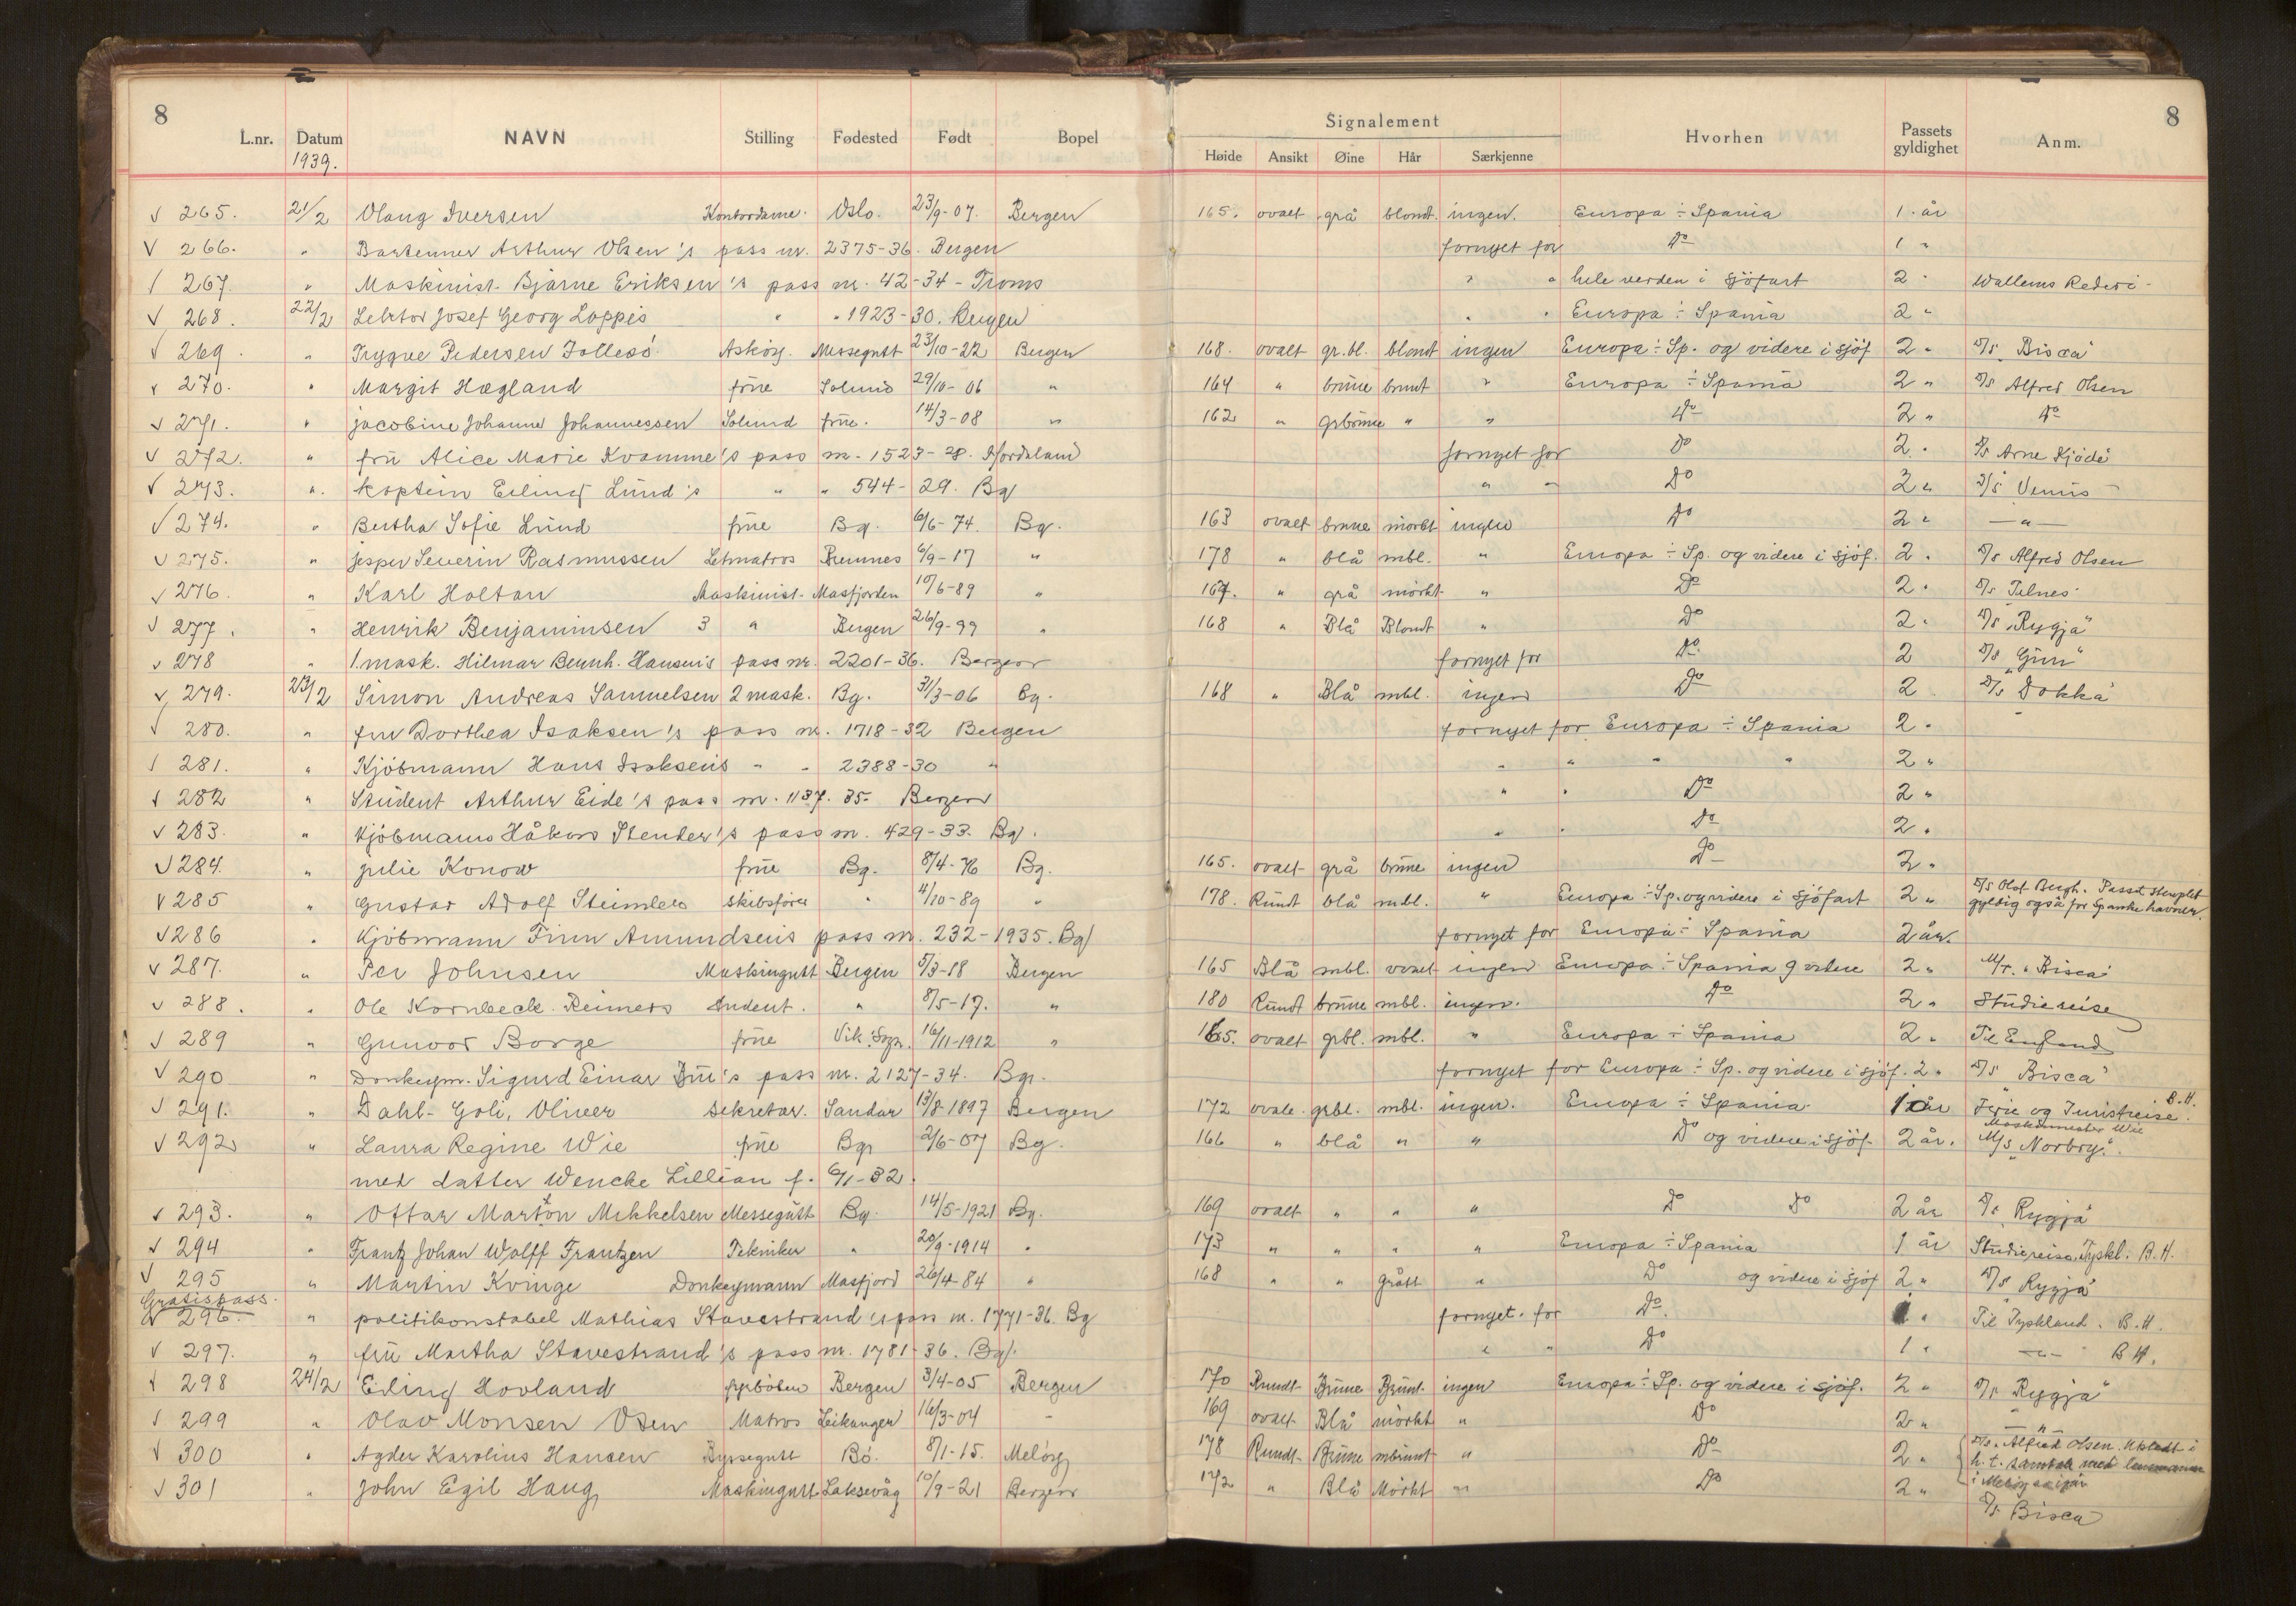 8
8
L.nr. Datum NAVN Stilling Fødested Født Bopel Signalement Hvorhen Passets gyldighet Anm.
Høide Ansikt Øine Hår Særkjenne
1939.
265. 21/2 Olaug Iversen Kontordame. Oslo. 23/9-07. Bergen 165. ovalt grå blondt. ingen. Europa ÷ Spania 1 år
266. " Bartenner Arthur Olsen's pass nr. 2375-36. Bergen fornyet for Do 1 "
267. " Maskinist Bjarne Eriksen's pass nr. 42-34 - Troms " " hele verden i sjöfart 2 " Wallems Rederi
268. 22/2 Lektor Josef Georg Loppis " " 1923-30. Bergen " " Europa ÷ Spania 2 "
269. " Trygve Pedersen Askøy. Messegutt 23/10-22 Bergen 168. ovalt gr.bl. blondt ingen Europa ÷ Sp. og videre i sjöf 2 " D/S "Bisca"
270. " Margit Hægland frue Solund 29/10-06 " 164 " brune brunt " Europa ÷ Spania 2 " D/S Alfred Olsen
271. " Jacobine Johanne Johannessen Solund frue. 14/3-08 " 162 " grbrune " " Do 2 " Do
272. " fru Alice Marie Kvamme's pass nr. 1523-28. Hordaland fornyet for Do 2 " D/S Arne Kjöde
273. " Kaptein Erling Lund's " " 544-29. Bg " " Do 2 " D/S Venus
274. " Bertha Sofie Lund frue Bg. 6/6-74. Bg. 163 ovalt brune mörkt ingen Do 2 " — " —
275. " Jesper Severin Rasmussen Letmatros Bremnes 6/9-17 " 178 " blå mbl. " Europa ÷ Sp. og videre i sjöf. 2 " D/S Alfred Olsen
276. " Karl Holtan Maskinist Masfjorden 10/6-89 " 167. " grå mörkt " Do 2 " D/S Tilnes
277. " Henrik Benjaminsen 3 " Bergen 26/9-99 " 168 " Blå Blondt " Do 2 " D/S "Rygja"
278 " 1.mask. Hilmar Bernh. Hansen's pass nr. 2201-36. Bergen fornyet for Do 2 D/S "Gun"
279. 23/2 Simon Andreas Samuelsen 2 mask. Bg. 31/3-06 Bg. 168 " Blå mbl. ingen Do 2 D/S "Dokka"
280. " fru Dorthea Isaksen's pass nr. 1718-32 Bergen fornyet for Europa ÷ Spania 2 "
281. " Kjöbmann Hans Isaksens " " 2388-30 " " " " " 2 "
282 " Student Arthur Eide's pass nr. 1137. 35. Bergen " " Do 2 "
283. " Kjöbmann Håkon Stender's pass nr. 429-33. Bg. " " Do 2 "
284. " Julie Konow frue Bg. 8/4-76 Bg. 165. ovalt grå brune ingen Do 2 "
285 " Gustav Adolf Steimler skibsförer " 4/10-89 " 178. Rundt blå mbl. " Europa ÷ Sp. og videre i sjöfart 2 " D/S Olof Bergh. Passet stemplet
gyldig også for Spanske havner.
286 " Kjöbmann Finn Amundsens pass nr. 232-1935. Bg fornyet for Europa ÷ Spania 2 år.
287. " Per Johnsen Maskingutt Bergen 5/3-18 Bergen 165 Blå mbl. ovalt ingen Europa ÷ Spania g videre 2 " "Bisca"
288. " Ole Kornbeck Reimers Student. " 8/5-17. " 180 Rundt brune mbl. ingen. Do 2 " Studiereise
289 " Gunvor Borge frue Vik Sogn. 16/11-1912 " 165. ovalt grbl. mbl. " Europa ÷ Spania 2 " Til England
290 " Donkeym. Sigurd Einar Bü's pass nr. 2127-34. Bg. fornyet for Europa ÷ Sp. og videre i sjöf. 2 " D/S "Bisca"
291. " Dahl-Goli, Oliver Sekretær. Sandar 13/8-1897 Bergen 172 ovalt. grbl. mbl. ingen. Europa ÷ Spania 1 år Ferie og Turistreise. B.H.
292 " Laura Regine Wie frue Bg. 2/6-07 Bg. 166 " blå " " Do og videre i sjöf. 2 år. Maskinmester Wie
M/S "Norbry".
med datter Wencke Lillian f. 6/1-32.
293. " Ottar Marton Mikkelsen Messegutt Bg. 14/5-1921 Bg. 169 ovalt " " " Do Do 2 år D/S "Rygja"
294 " Frantz Johan Wolff Frantzen Tekniker " 20/9-1914 " 173 " " " " Europa ÷ Spania 1 år Studiereise Tyskl. B.H.
295 " Martin Kvinge Donkeymann Masfjord 26/4-84 " 168 " " grått " Do og videre i sjöf 2 " D/S "Rygja"
Gratispass.
296. " politikonstabel Mathias Stavestrand's pass nr. 1771-36. Bg fornyet for Do. 1 " Til Tyskland. B.H.
297. " fru Martha Stavestrand's pass nr. 1781-36. Bg. " " Do 1 " — " — B.H.
298 24/2 Erling Hovland fyrböter Bergen 3/4-05 Bergen 170 Rundt Brune Brunt ingen Europa ÷ Sp. og videre i sjöf. 2 " D/S "Rygja"
299 " Olav Monsen Osen Matros Leikanger 16/3-04 - 169 ovalt Blå mörkt " Do 2 " — " —
300 " Agder Karolius Hansen Byssegutt Bö. 8/1-15. Melöy 178 Rundt Brune mbrunt " Do 2 " D/S. Alfred Olsen. Utstedt i
h.t. samtale med lensmannen
i
301 " John Egil Haug Maskingutt Laksevåg 10/9-21 Bergen 172 " Blå Mörkt " Do 2 " D/S. Bisca